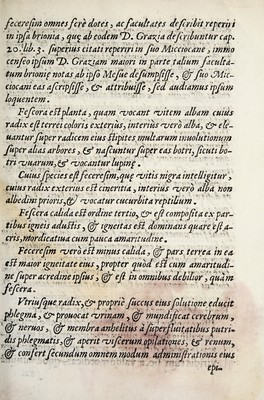 feceresim omnes ferè dotes, ac facultates describit reperiri
in ipsa brionia, quę ab eodem D. Grazia describuntur cap.
20. lib. 3. superius citati reperiri in suo Micciocane, immo
censeo ipsum D. Graziam maiori in parte talium faculta-
tum brionię notas ab ipso Mesue desumpsisse, & suo Mic-
ciocani eas ascripsisse, & attribuisse, sed audiamus ipsum
loquentem.
Fescera est planta, quam vocant vitem albam cuius
radix est terrei coloris exterius, interius verò alba, & ele-
uantur super radicem eius stipites multarum inuolutionum
super alias arbores, & nascuntur super eas botri, sicuti bo-
tri vuarum, & vocantur lupinę.
Cuius species est feceresim, quę vitis nigra intelligitur,
cuius radix exterius est cineritia, interius verò alba non
albedini prioris, & vocatur cucurbita reptilium.
Fescera calida est ordine tertio, & est composita ex par-
tibus igneis adustis, & igneitas est dominans quare est a-
cris, mordicatiua cum pauca amaritudine.
Feceresim verò est minus calida, & pars terrea in ea
est maior igneitate eius, propter quòd est cum amaritudi-
ne super acredine ipsius, & est in omnibus debilior, quàm
fescera.
Vtriusque radix, & propriè succus eius solutione educit
phlegma, & prouocat vrinam, & mundificat cerebrum,
& neruos, & membra anhelitus à superfluitatibus putri-
dis phlegmatis, & aperit viscerum opilationes, & renum,
& confert secundum omnem modum administrationis eius
epi-